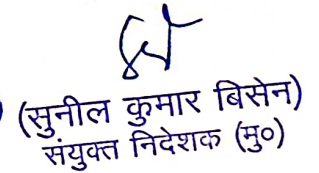 (सुनील कुमार बिसेन)
संयुक्त निदेशक (मु०)